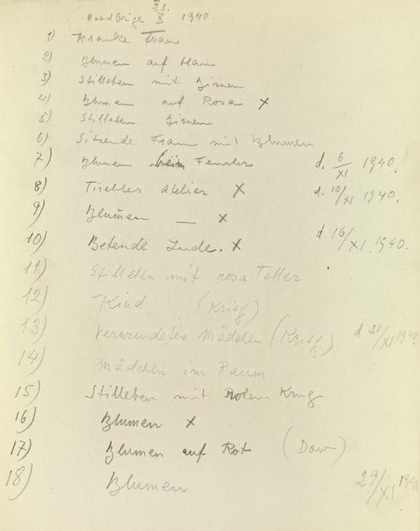 31. 3 1940
1) Kranke Frau
2) Blumen auf
3) Stilleben mit Birnen
4) Blumen auf Rosa x
5) Stilleben Birnen
6) Sitzende Frau mit Blumen
7) Blumen beim Fenster d. 6/XI 1940.
8) Atelier x d. 10/XI 1940.
9) Blumen — x
10) Betende Jude. x d 16/XI. 1940.
11) Stilleben mit rosa Teller
12) Kind (Krieg)
13) Verwundetes Mädchen (Krieg) d 21/XI 1940
14) Mädchen im Raum
15) Stilleben mit Rotem Krug
16) Blumen x
17) Blumen auf Rot
18) Blumen 29/XI 1940